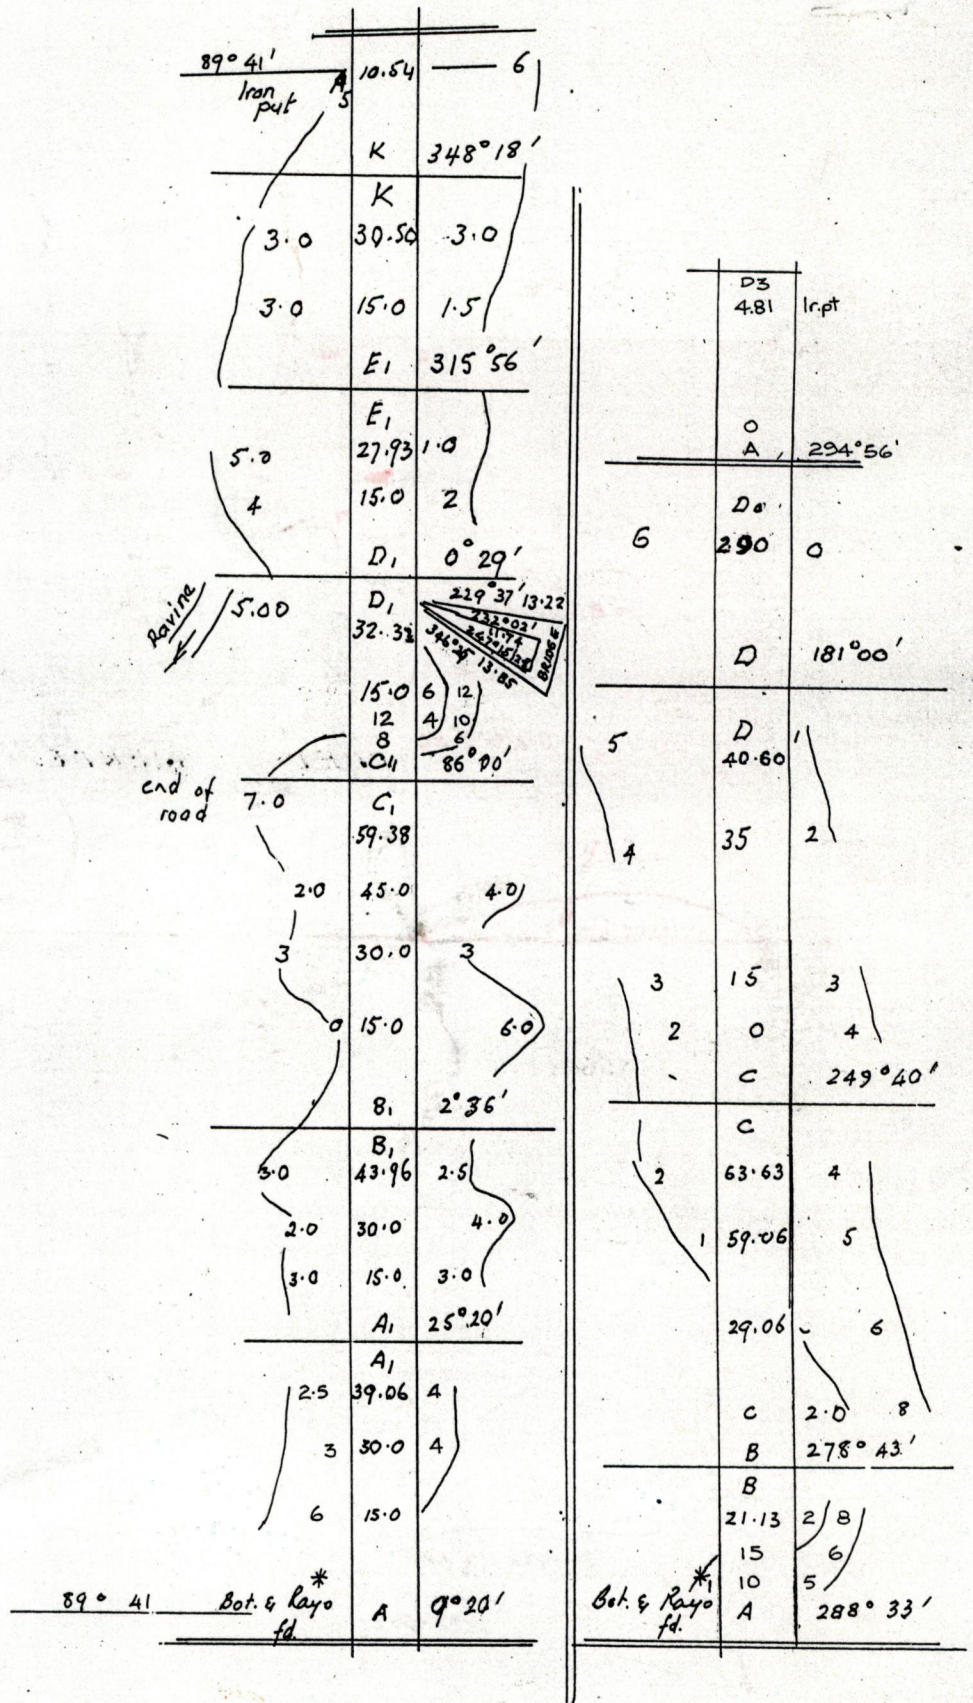 89° 41' 10.54 6
Iron put 5
K 348° 18'
K
3.0 30.50 3.0
3.0 15.0 1.5
E1 315° 56'
E1
5.0 27.93 1.0
4 15.0 2
D1 0° 29'
Ravine 5.00 D1 229° 37' 13.22
32.32 232° 02'
11.74
346° 29' 13.85
BRIDGE
15.0 6 12
12 4 10
8 6
C1 86° 00'
end of road
7.0 C1
59.38
2.0 45.0 4.0
3 30.0 3
0 15.0 6.0
B1 2° 36'
B1
3.0 43.96 2.5
2.0 30.0 4.0
3.0 15.0 3.0
A1 25° 20'
A1
2.5 39.06 4
3 30.0 4
6 15.0
*
89° 41 Bot. & Rayo fd. A 9° 20'
D3
4.81 Ir.pt
O
A 294° 56'
6 290 0
D 181° 00'
5 D 1
40.60
4 35 2
3 15 3
2 0 4
C 249° 40'
C
2 63.63 4
1 59.06 5
29.06 6
C 2.0 8
B 278° 43'
B
21.13 2 8
15 6
* 1 10 5
Bot. & Rayo fd. A 288° 33'